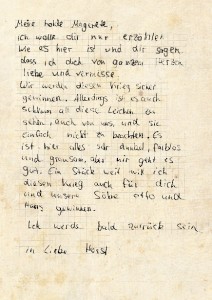 Meine holde Magarete,
ich wollte dir nur erzählen
wie es hier ist und dir sagen,
dass ich dich von ganzem Herzen
liebe und vermisse.
Wir werden diesen Krieg sicher
gewinnen. Allerdings ist es auch
schlimm all diese Leichen zu
sehen auch von uns, und sie
einfach nicht zu beachten. Es
ist hier alles so dunkel, farblos
und grausam, aber mir geht es
gut. Ein Stück weil wir ich
diesen Krieg auch für dich
und unsere Söhne Otto und
Hans gewinnen.
Ich werde bald zurück sein
in Liebe Horst